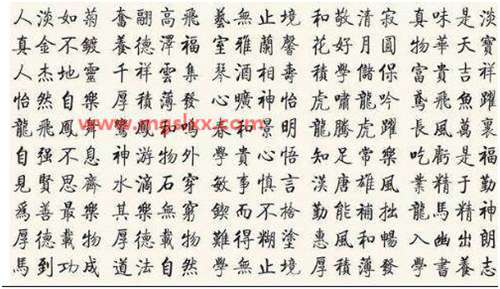 人淡如菊 奮翮高飛 藝無止境 和敬清寂 真味是淡
真金不鍍 養德澤福 室雅蘭馨 花好月圓 物華天寶
人杰地靈 千祥雲集 琴酒相壽 學儲保 富貴吉祥
怡然自樂 厚積薄發 心曠神怡 虎嘯龍吟 鳶飛魚躍
龍飛鳳舞 鸞鳳和鳴 和景明 龍騰虎躍 長風萬裏
自强不息 神游物外 學貴心悟 知足常樂 吃虧是福
見賢思齊 水滴石穿 敏事慎言 漢唐雄風 業精于勤
爲善最樂 其樂無窮 鍥而不捨 勤能補拙 馬精神
厚德載物 厚德載物 難得糊塗 惠風和暢 入幽出朗
馬到功成 道法自然 學無止境 厚積薄發 學書養志